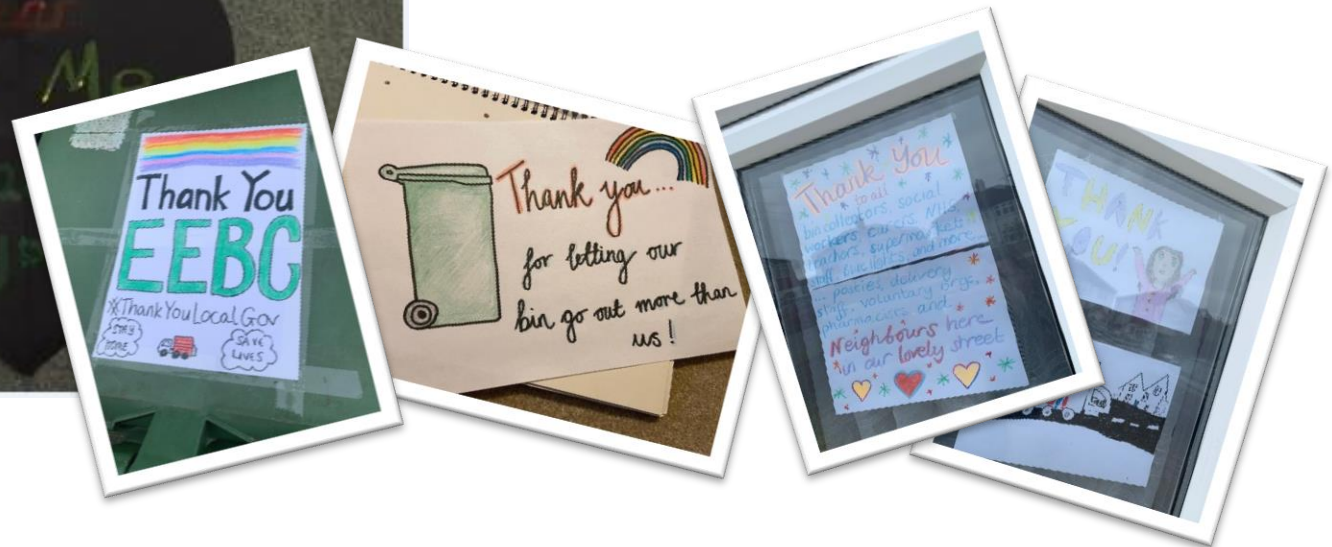 Me
Thank You
EEBC
#ThankYouLocalGov
STAY
HOME
SAVE
LIVES
Thank you...
for letting our
bin go out more than
us!
Thank You
to all
bin collectors, social
workers, carers, NHS,
teachers, supermarkets
staff, blue lights, and more...
posties, delivery
staff, voluntary orgs,
pharmacies and
Neighbours here
in our lovely street
THANK
YOU!